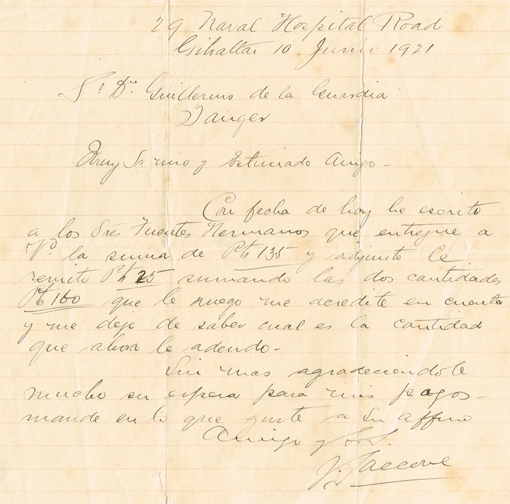 29 Naval Hospital Road
Gibraltar 10 Junio 1921
Sr Dn Guillermo de la Guardia
Tanger
Muy Sr mio y Estimado Amigo -
Con fecha de hoy he escrito
a los Sres Fuentes Hermanos que entregue a
Vd la suma de Pts 135 y adjunto le
remito Pts 25 sumando las dos cantidades
Pts 160 que le ruego me acredite en cuenta
y me deje de saber cual es la cantidad
que ahora le adeudo -
Sin mas agradeciendole
mucho su espera para mis pagos -
mande en lo que guste a su affmo
Amigo y S.S.
J. Saccone